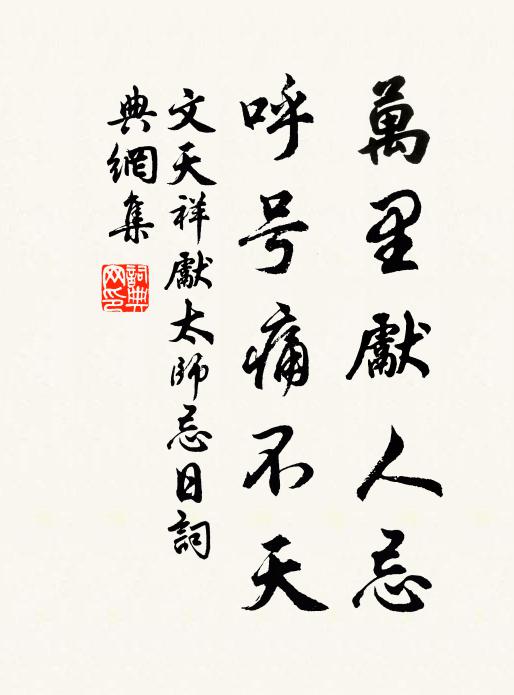 萬里獻人忌
呼号痛不天
文天祥獻太師忌日詞
典網集
詞典
网印